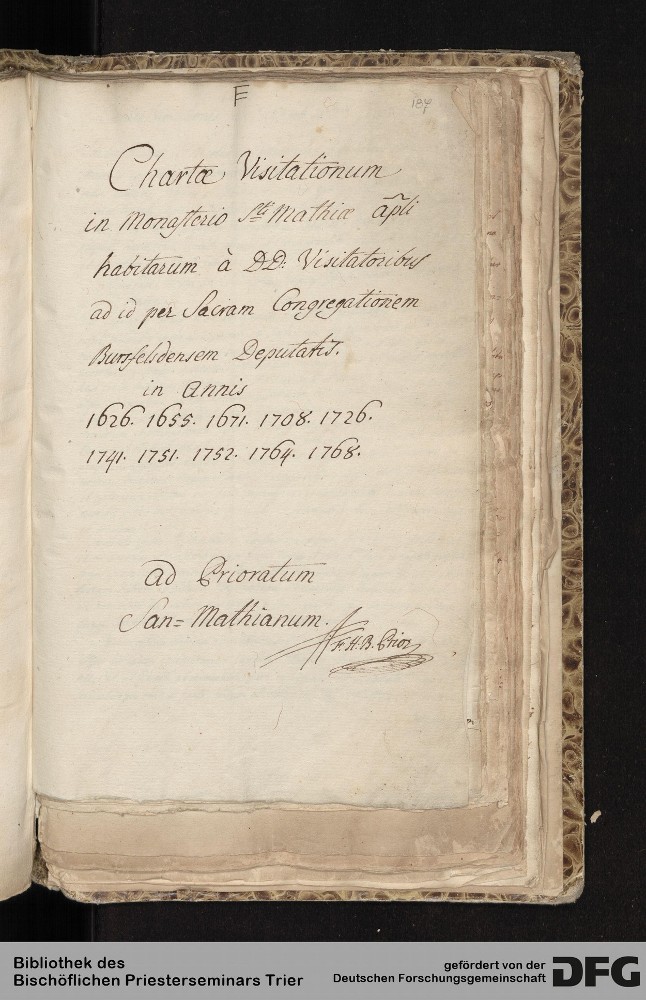 E
187
Chartæ Visitationum
in Monasterio Sti Mathiæ ap̃li
habitarum à DD: Visitatoribus
ad id per Sacram Congregationem
Bursfeldensem Deputatis.
in Annis
1626. 1655. 1671. 1708. 1726.
1741. 1751. 1752. 1764. 1768.
ad Prioratum
San= Mathianum.
F. H. B. Prior
Bibliothek des
Bischöflichen Priesterseminars Trier
gefördert von der
Deutschen Forschungsgemeinschaft
DFG